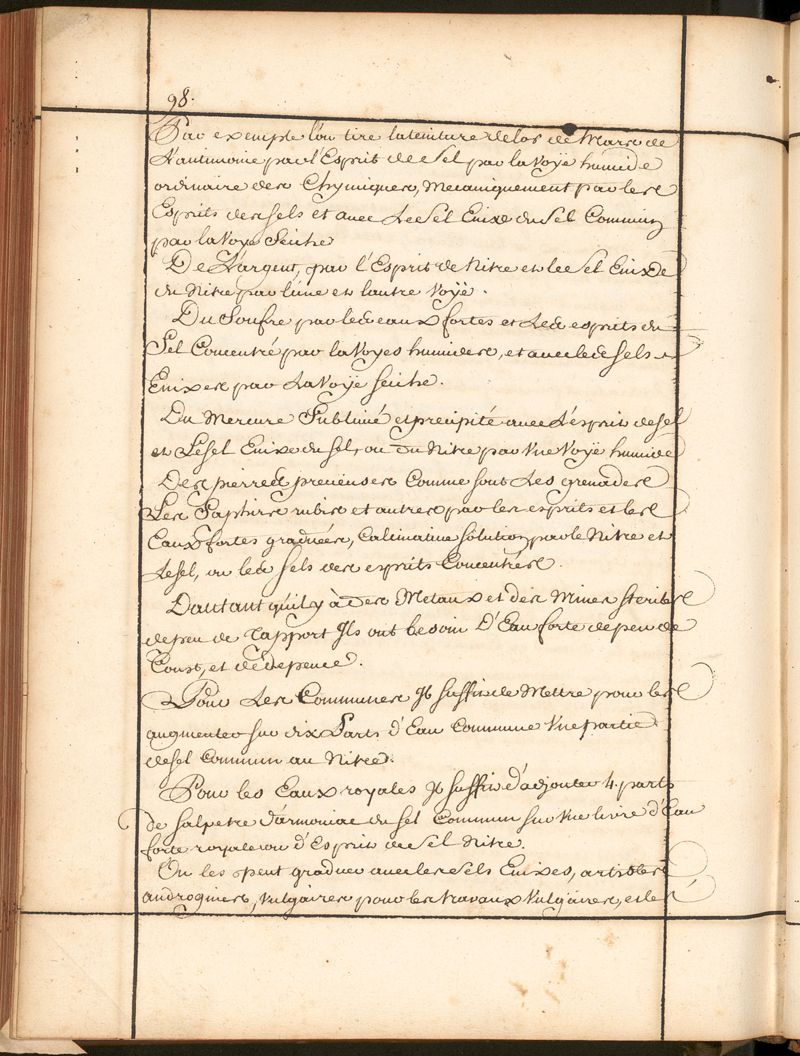 98.
Par exemple l'on tire la teinture de l'or de Mars de
L'antimoine par l'Esprit de Sel par la Voÿe humide
ordinaire des Chymiques, Mecaniquement par les
Esprits des sels et avec Le Sel Enixe du Sel Commun
par la Voye Seiche
De L'argent, par l'Esprit de Nitre et le Sel Enixe
du Nitre par l'une et l'autre Voÿe.
Du Soufre par les eaux fortes et Les esprits du
Sel Concentré par la Voyes humides, et avec les Sels
Enixes par La Voÿe seiche.
Du Mercure Sublimé et precipité avec L'esprit de sel
et Le sel Enixe du sel, ou du Nitre par Vne Voÿe humide
Des pierres precieuses Comme sont Les grenades
Les Saphirs rubis et autres par les esprits et les
Eaux fortes graduées, Calcination solution par le Nitre et
Le sel, ou les sels des esprits Concentrés.
D'autant qu'il y à Des Metaux et des Mines steriles
de peu de rapport Ils ont besoin D'Eau forte de peu de
Coust, et de depence.
Pour Les Communes Il suffit de Mettre pour les
augmenter sur dix Parts d'Eau Commune Vne partie
de sel Commun ou Nitre.
Pour les Eaux royales Il suffit d'adjouter 4. parts
de salpetre d'armoniac du sel Commun sur Vne livre d'Eau
forte royale ou d'Esprit de Sel Nitre.
On les peut graduer avec les Sels Enixes,
androgines, Vulgaires pour les travaux Vulgaires, et les